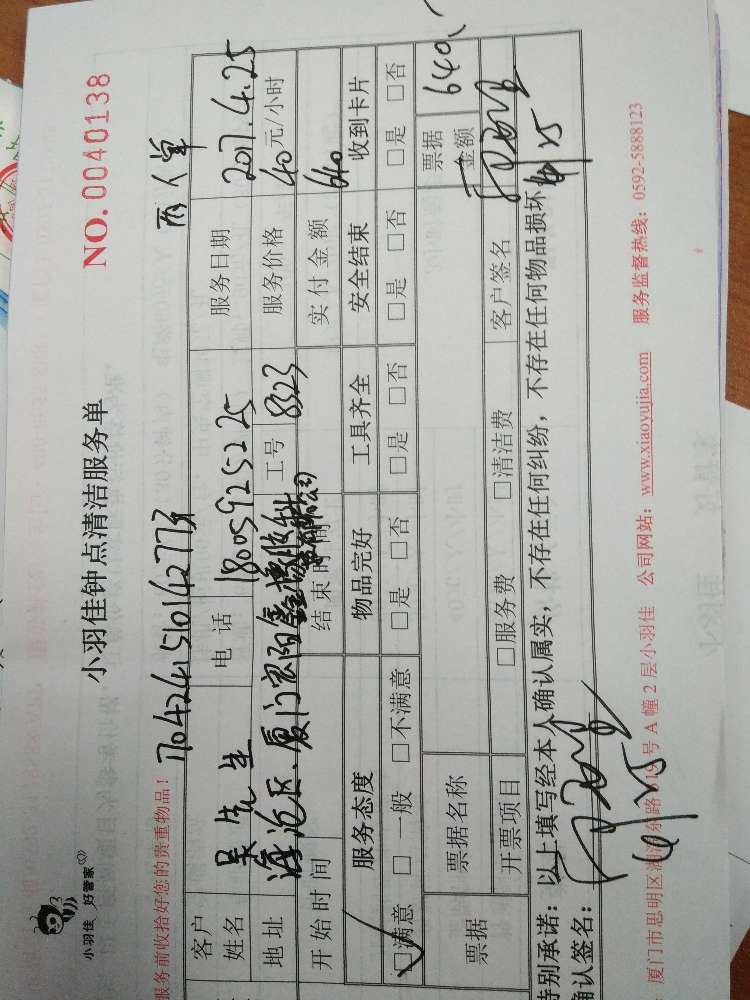 小羽佳 好管家
小羽佳钟点清洁服务单
NO.0040138
服务前收拾好您的贵重物品!
1704241510142773
两人单
客户姓名 吴先生 电话 18005925225 服务日期 2017.4.25
地址 海沧区.厦门 工号 8323 服务价格 40元/小时
开始时间 结束时间 实付金额 640
服务态度 物品完好 工具齐全 安全结束 收到卡片
□满意 □一般 □不满意 □是 □否 □是 □否 □是 □否 □是 □否
票据 票据名称 票据金额 640
开票项目 □服务费 □清洁费 客户签名
特别承诺: 以上填写经本人确认属实, 不存在任何纠纷, 不存在任何物品损坏
确认签名:
厦门市思明区 号A幢2层小羽佳 公司网站: www.xiaoyujia.com 服务监督热线: 0592-5888123